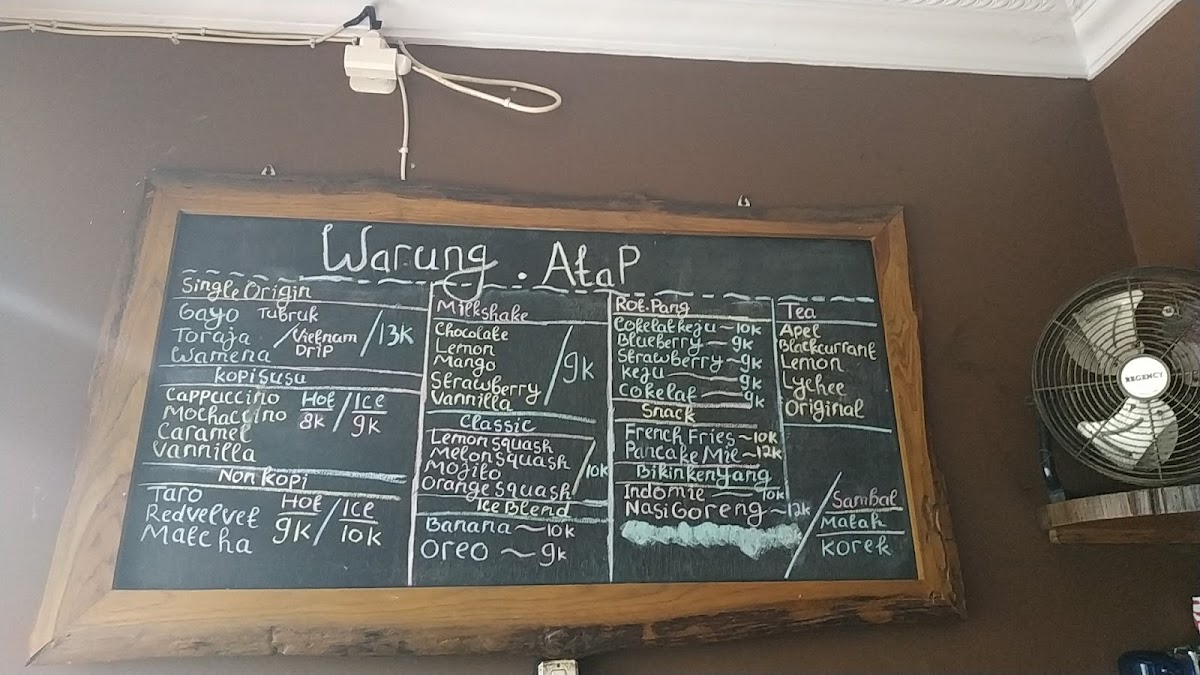 Warung . AtaP
Single Origin
Gayo Tubruk
Toraja / Vietnam / 13K
Wamena DRIP
kopisusu
Cappuccino Hot / Ice
Mochaccino 8k 9k
Caramel
Vannilla
Non kopi
Taro Hot / Ice
Redvelvet 9k 10k
Matcha
Milkshake
Chocolate
Lemon
Mango / 9k
Strawberry
Vannilla
Classic
Lemon squash
Melon squash
Mojito / 10k
Orange squash
Ice Blend
Banana ~ 10k
Oreo ~ 9k
Rot.Pang
Cokelat keju ~ 10k
Blueberry ~ 9k
Strawberry ~ 9k
Keju ~ 9k
Cokelat ~ 9k
Snack
French Fries ~ 10k
Pancake Mie ~ 12k
Bikinkenyang
Indomie ~ 10k
Nasi Goreng ~ 12k
Tea
Apel
Blackcurrant
Lemon
Lychee
Original
Sambal
Matah
Korek
REGENCY